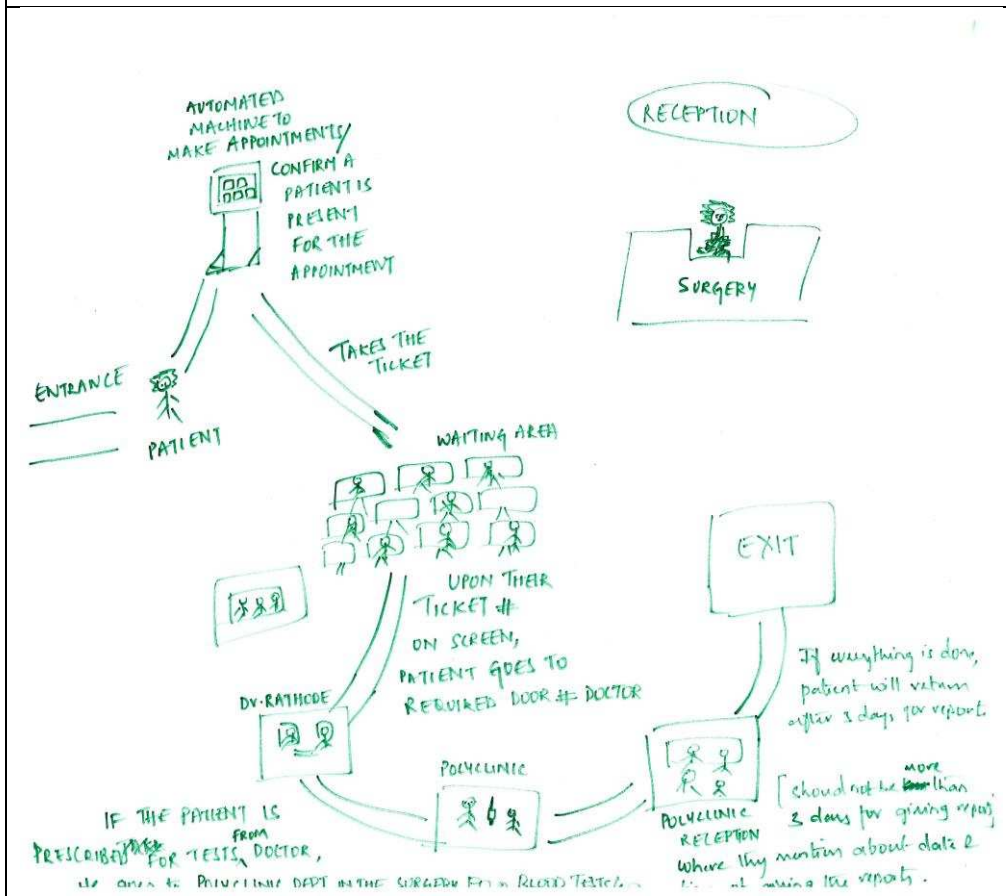 AUTOMATED
MACHINE TO
MAKE APPOINTMENTS/
CONFIRM A
PATIENT IS
PRESENT
FOR THE
APPOINTMENT
RECEPTION
SURGERY
TAKES THE
TICKET
ENTRANCE
PATIENT
WAITING AREA
UPON THEIR
TICKET #
ON SCREEN,
PATIENT GOES TO
REQUIRED DOOR # DOCTOR
EXIT
If everything is done,
patient will return
after 3 days for report
Dr. RATHODE
POLYCLINIC
POLYCLINIC
RECEPTION
[should not be more than
3 days for giving report
where they mention about date &
IF THE PATIENT IS
PRESCRIBED FOR TESTS FROM DOCTOR,
POLYCLINIC DEPT IN THE SURGERY FOR BLOOD
the report.